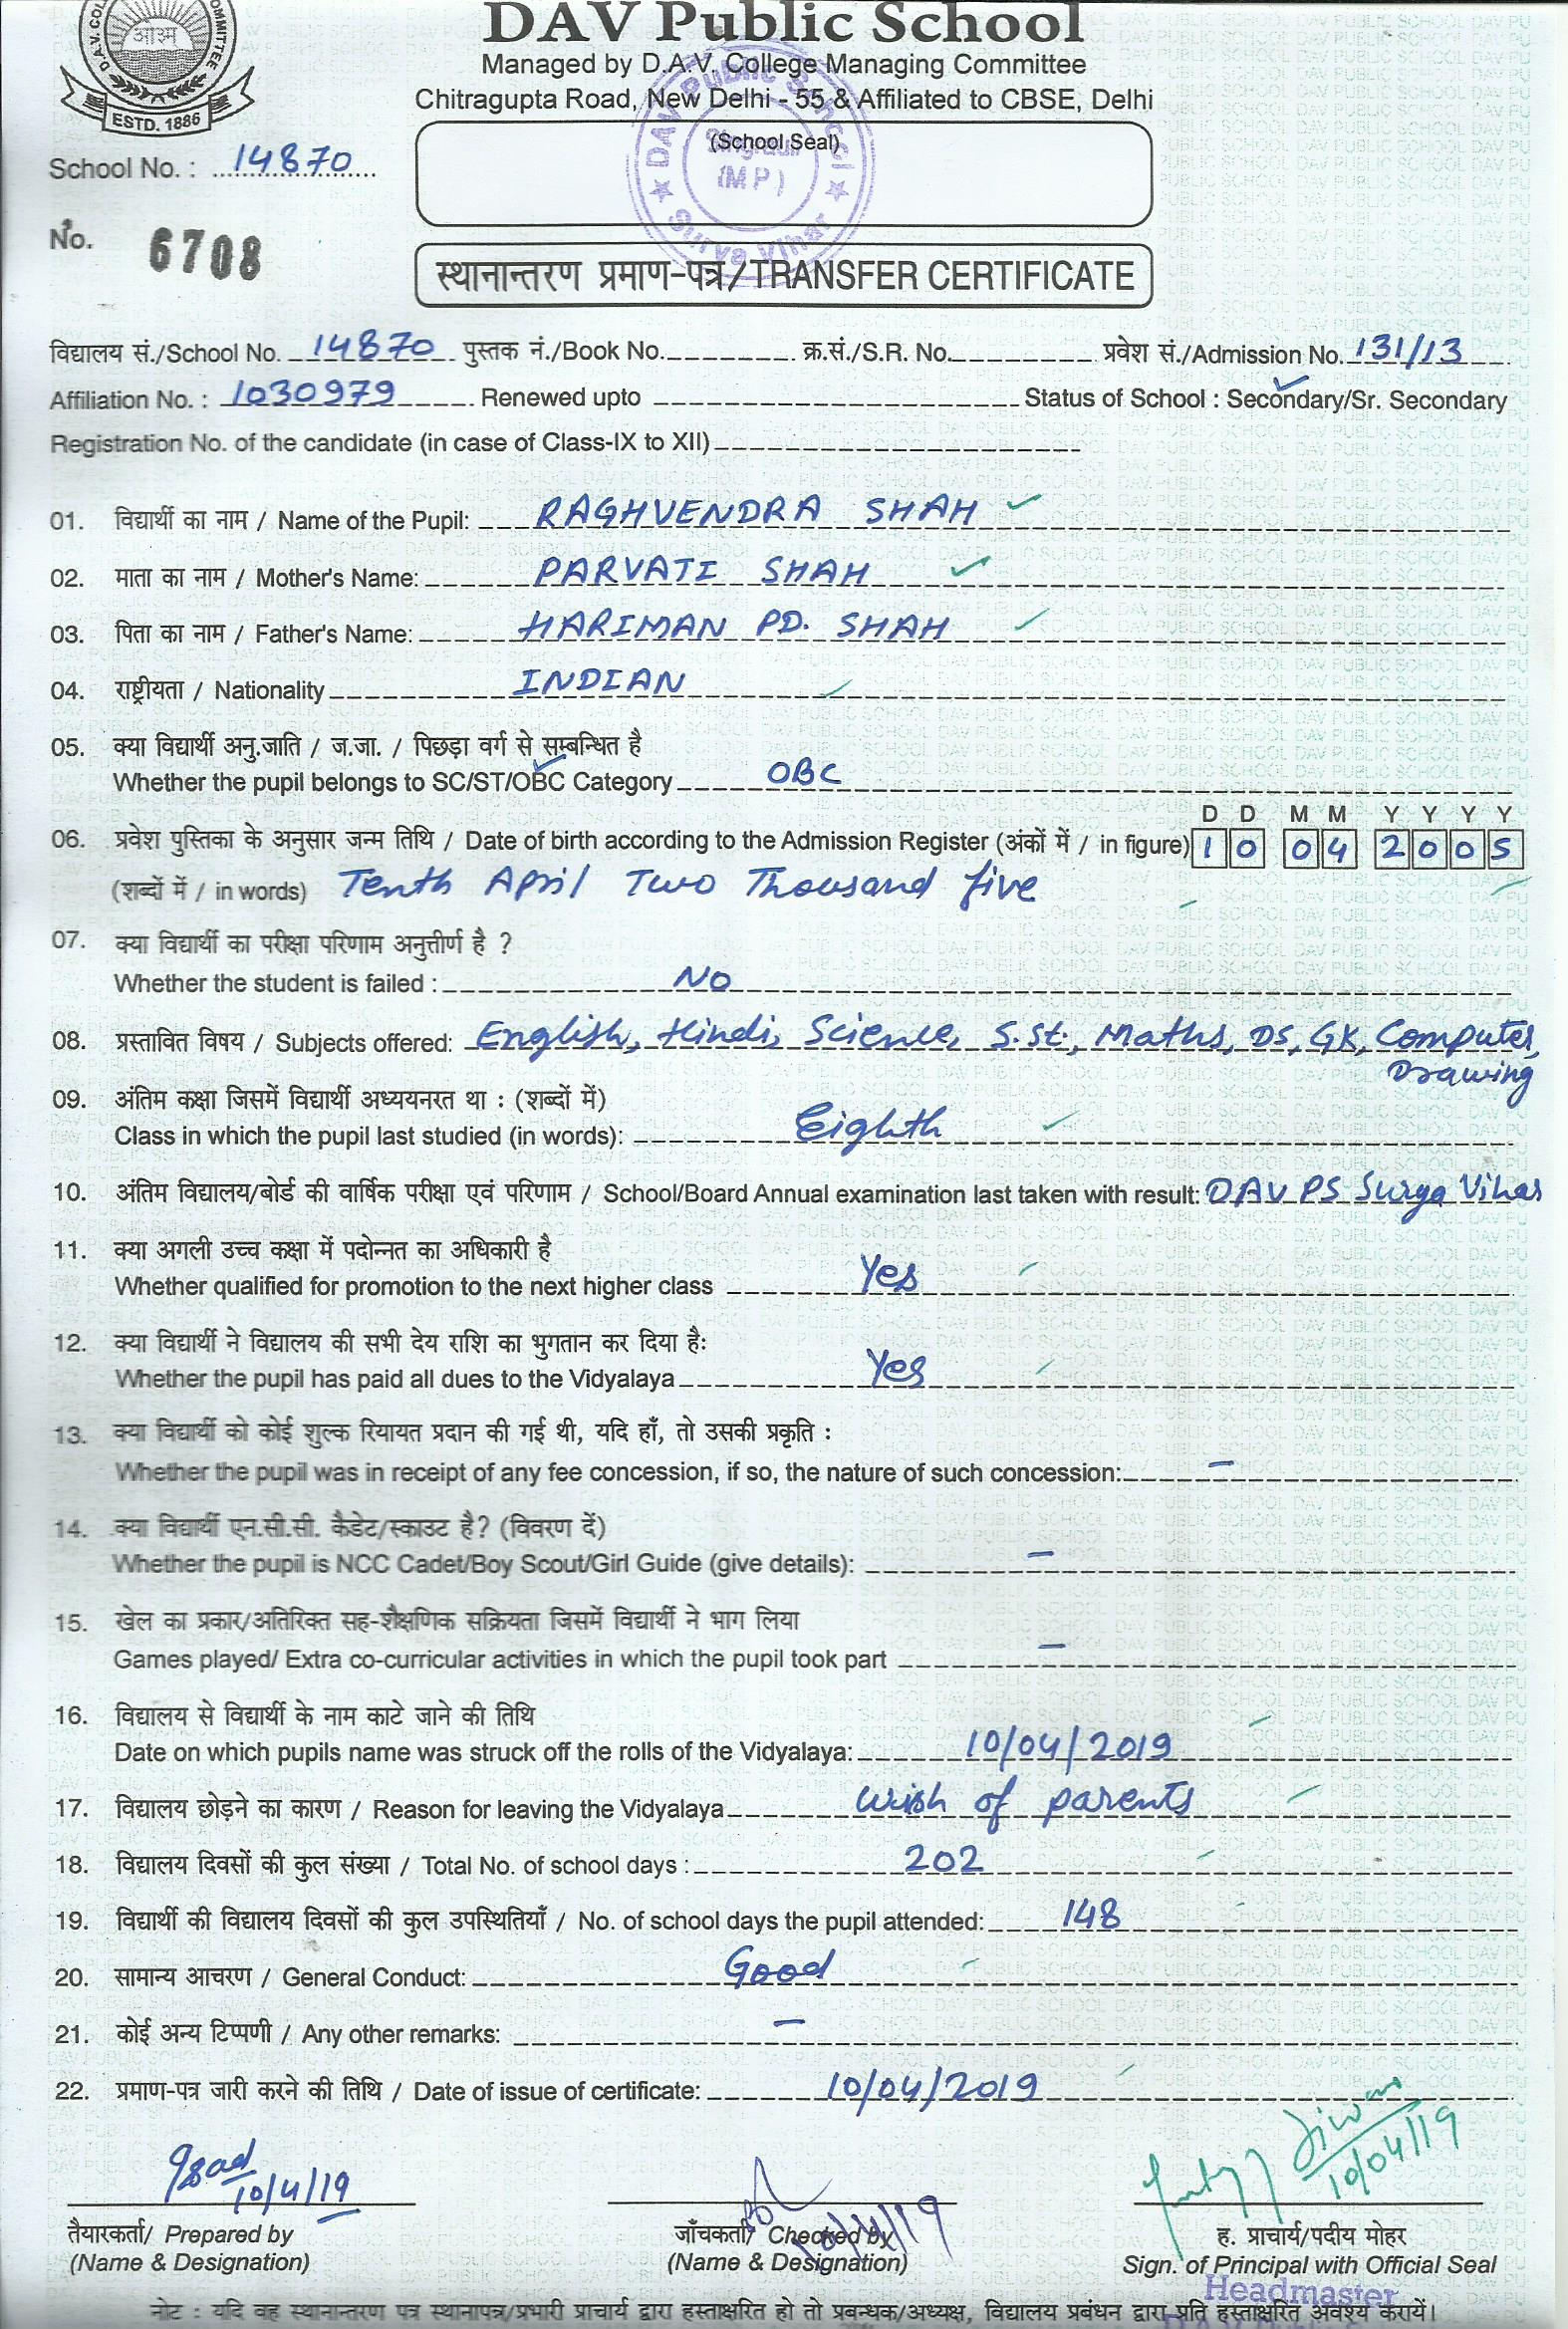 DAV Public School
Managed by D.A.V. College Managing Committee
Chitragupta Road, New Delhi - 55 & Affiliated to CBSE, Delhi
ओ३म्
ESTD. 1886
(School Seal)
DAV Public School
Singrauli
(M P)
Surya Vihar
School No. : 14870
No. 6708
स्थानान्तरण प्रमाण-पत्र/TRANSFER CERTIFICATE
विद्यालय सं./School No. 14870 पुस्तक नं./Book No. क्र.सं./S.R. No. प्रवेश सं./Admission No. 131/13
Affiliation No. : 1030979 Renewed upto Status of School : Secondary/Sr. Secondary
Registration No. of the candidate (in case of Class-IX to XII)
01. विद्यार्थी का नाम / Name of the Pupil: RAGHVENDRA SHAH
02. माता का नाम / Mother's Name: PARVATI SHAH
03. पिता का नाम / Father's Name: HARIMAN PD. SHAH
04. राष्ट्रीयता / Nationality INDIAN
05. क्या विद्यार्थी अनु.जाति / ज.जा. / पिछड़ा वर्ग से सम्बन्धित है
Whether the pupil belongs to SC/ST/OBC Category OBC
D D M M Y Y Y Y
06. प्रवेश पुस्तिका के अनुसार जन्म तिथि / Date of birth according to the Admission Register (अंकों में / in figure) 1 0 0 4 2 0 0 5
(शब्दों में / in words) Tenth April Two Thousand five
07. क्या विद्यार्थी का परीक्षा परिणाम अनुत्तीर्ण है ?
Whether the student is failed : NO
08. प्रस्तावित विषय / Subjects offered: English, Hindi, Science, S.St., Maths, DS, GK, Computer,
Drawing
09. अंतिम कक्षा जिसमें विद्यार्थी अध्ययनरत था : (शब्दों में)
Class in which the pupil last studied (in words): Eighth
10. अंतिम विद्यालय/बोर्ड की वार्षिक परीक्षा एवं परिणाम / School/Board Annual examination last taken with result: DAV PS Surya Vihar
11. क्या अगली उच्च कक्षा में पदोन्नत का अधिकारी है
Whether qualified for promotion to the next higher class Yes
12. क्या विद्यार्थी ने विद्यालय की सभी देय राशि का भुगतान कर दिया हैः
Whether the pupil has paid all dues to the Vidyalaya Yes
13. क्या विद्यार्थी को कोई शुल्क रियायत प्रदान की गई थी, यदि हाँ, तो उसकी प्रकृति :
Whether the pupil was in receipt of any fee concession, if so, the nature of such concession: –
14. क्या विद्यार्थी एन.सी.सी. कैडेट/स्काउट है? (विवरण दें)
Whether the pupil is NCC Cadet/Boy Scout/Girl Guide (give details): –
15. खेल का प्रकार/अतिरिक्त सह-शैक्षणिक सक्रियता जिसमें विद्यार्थी ने भाग लिया
Games played/ Extra co-curricular activities in which the pupil took part –
16. विद्यालय से विद्यार्थी के नाम काटे जाने की तिथि
Date on which pupils name was struck off the rolls of the Vidyalaya: 10/04/2019
17. विद्यालय छोड़ने का कारण / Reason for leaving the Vidyalaya wish of parents
18. विद्यालय दिवसों की कुल संख्या / Total No. of school days : 202
19. विद्यार्थी की विद्यालय दिवसों की कुल उपस्थितियाँ / No. of school days the pupil attended: 148
20. सामान्य आचरण / General Conduct: Good
21. कोई अन्य टिप्पणी / Any other remarks: –
22. प्रमाण-पत्र जारी करने की तिथि / Date of issue of certificate: 10/04/2019
10/4/19 10/4/19 10/04/19
तैयारकर्ता/ Prepared by जाँचकर्ता/ Checked by ह. प्राचार्य/पदीय मोहर
(Name & Designation) (Name & Designation) Sign. of Principal with Official Seal
Headmaster
नोट : यदि वह स्थानान्तरण पत्र स्थानापन्न/प्रभारी प्राचार्य द्वारा हस्ताक्षरित हो तो प्रबन्धक/अध्यक्ष, विद्यालय प्रबंधन द्वारा प्रति हस्ताक्षरित अवश्य करायें।